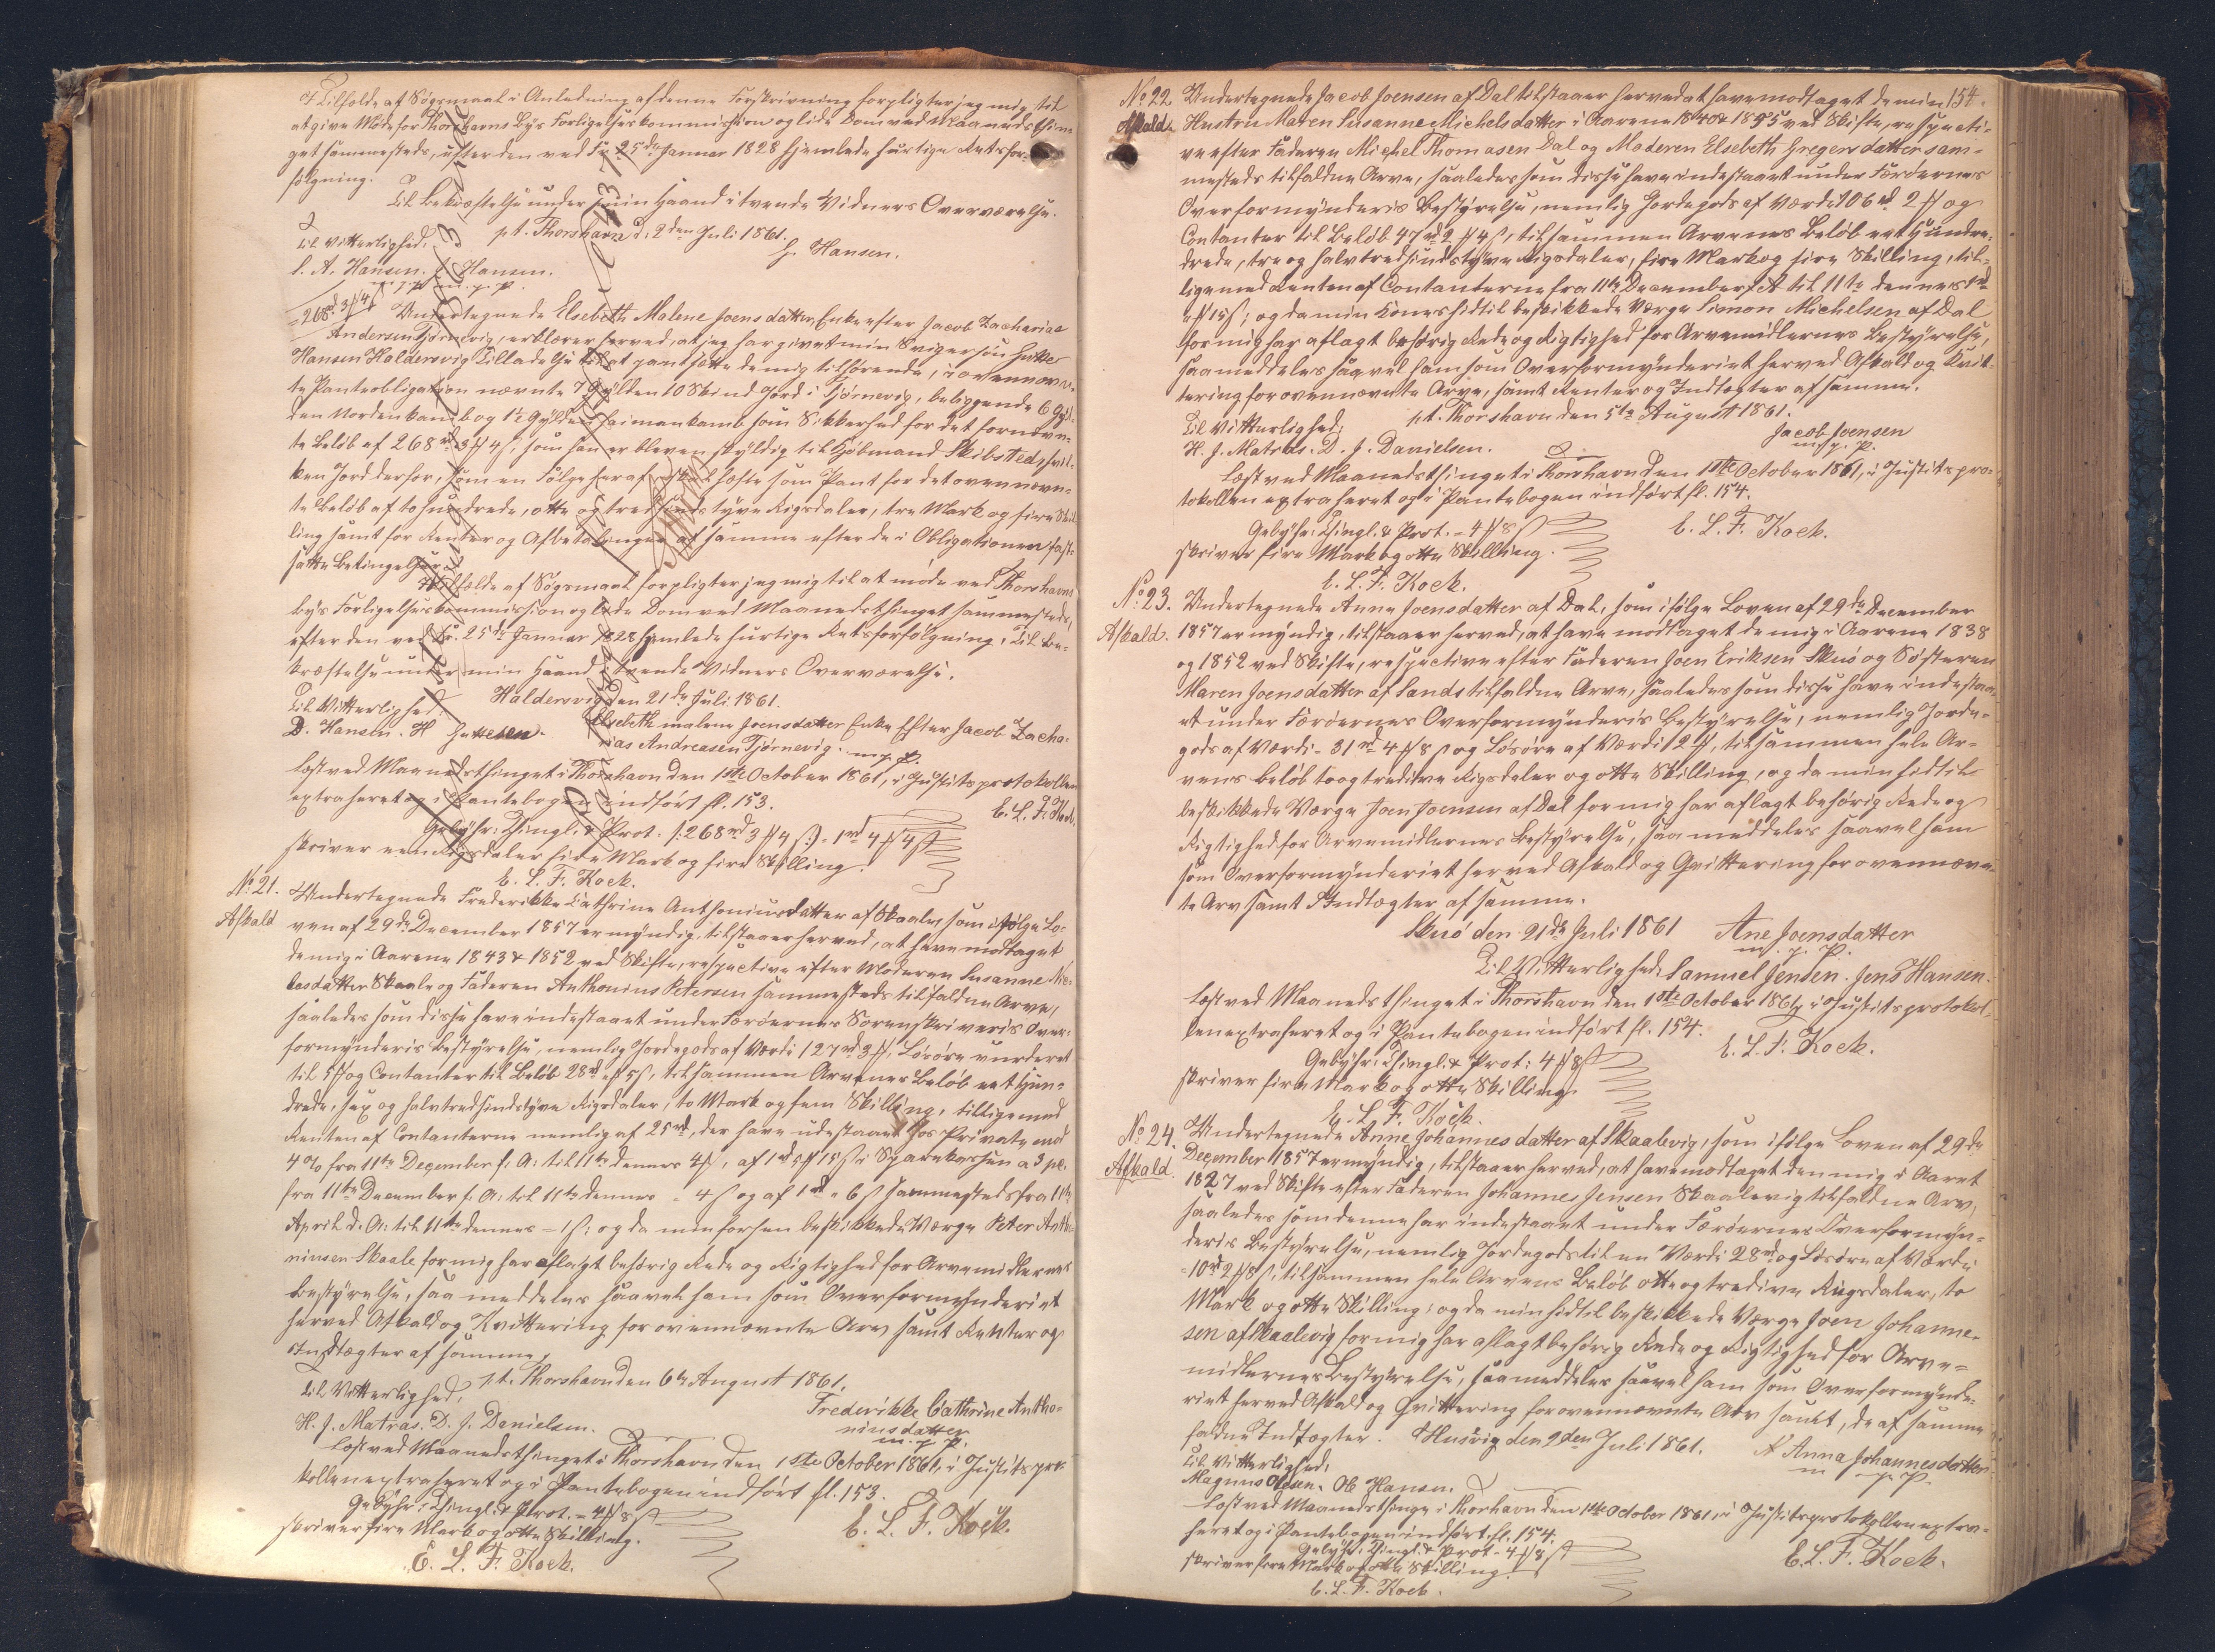 I Tilfælde af Søgsmaal i Anledning af denne Forskrivning forpligter jeg mig til
at give Møde for Thorshavns Byes Forligelseskommission og lide Dom ved Maanedsthin-
get sammesteds, efter den ved Fr. 25de Januar 1828 hjemlede hurtige Retsfor-
følgning.
Til Bekræftelse under min Haand i tvende Vidners Overværelse.
p.t. Thorshavn d: 2den Juli 1861.
Til Vitterlighed: H. Hansen.
L. A. Hansen. J. Hansen.
m. p. p. m. p. p.
= 268rd 3 4
Undertegnede Elsebeth Malene Joensdatter, Enke efter Jacob Zacharias
Andersen Tjørnevig, erklærer herved, at jeg har givet min Svigersøn
Hansen Haldersvig Tilladelse til at pantsætte de mig tilhørende, i ovennævn-
te Panteobligation nævnte 7 Gylden 10 Skind Jord i Tjørnevig, beliggende 6 Gyl-
den Nordenkamb og 1½ Gylden Heimankamb som Sikkerhed for det fornævn-
te Beløb af 268rd 3 4 s, som han er bleven skyldig til Kjøbmand Skibsted, hvil-
ken Jord derfor, som en Følge heraf skal hæfte som Pant for det ovennævn-
te Beløb af tohundrede, otte og tredsindstyve Rigsdaler, tre Mark og fire Skil-
ling samt for Renter og Afbetalinger af samme efter de i Obligationen fast-
satte Betingelser.
I Tilfælde af Søgsmaal forpligter jeg mig til at møde ved Thorshavns
Byes Forligelseskommission og lide Dom ved Maanedsthinget sammesteds,
efter den ved Fr. 25de Januar 1828 hjemlede hurtige Retsforfølgning. Til Be-
kræftelse under min Haand i tvende Vidners Overværelse.
Haldersvig den 21de Juli 1861.
Til Vitterlighed: Elsebeth malene Joensdatter Enke Efter Jacob Zacha-
D. Hansen. H rias Andreasen Tjørnevig. m. p. P.
Læst ved Maanedsthinget i Thorshavn den 1ste October 1861, i Justitsprotokollen
extraheret og i Pantebogen indført fl. 153.
E. L. F. Kock.
Gebyhr: Thingl. & Prot. /:268rd 3 4 s:/ = 1rd 4 4 s
skriver een Rigsdaler fire Mark og fire Skilling.
E. L. F. Kock.
No 21. Undertegnede Frederikke Cathrine Anthoniusdatter af Skaale, som ifølge Lo-
Afkald ven af 29de December 1857 er myndig, tilstaaer herved, at have modtaget
de mig i Aarene 1843 & 1852 ved Skifte, respective efter Moderen Susanne Nic-
lesdatter Skaale og Faderen Anthonius Petersen sammesteds tilfaldne Arve,
saaledes som disse have indestaaet under Færøernes Sorenskriveris Over-
formynderis Bestyrelse, nemlig Jordegods af Værdi 127rd 3, Løsøre vurderet
til 5 og Contanter til Beløb 28rd 5 s, tilsammen Arvenes Beløb eet Hun-
drede, sex og halvtredsindstyve Rigsdaler, to Mark og fem Skilling, tilligemed
Renten af Contanterne nemlig af 25rd, der have udestaaet hos Private mod
4% fra 11te December f. A: til 11te dennes 4, af 1rd 5 15 s i Sparekassen a 3 pC.
fra 11te December f. A: til 11te dennes = 4 s og af 1rd " 6 s sammesteds fra 11te
April d. A: til 11te dennes = 1 s; og da min forhen beskikkede Værge Peter Antho-
niussen Skaale for mig har aflagt behørig Rede og Rigtighed for Arvemidlernes
Bestyrelse, saa meddeles saavel ham som Overformynderiet
herved Afkald og Kvittering for ovennævnte Arv samt Renter og
Indtægter af samme.
p.t. Thorshavn den 6te August 1861.
Til Vitterlighed: Frederikke Cathrine Antho-
H. J. Matras. D. J. Danielsen. niusdatter
m. p. P.
Læst ved Maanedsthinget i Thorshavn den 1ste October 1861, i Justitspro-
kollen extraheret og i Pantebogen indført fl. 153.
Gebyhr: Thingl. & Prot. = 4 8 s
skriver fire Mark og otte Skilling. E. L. F. Kock.
E. L. F. Kock.
154.
No 22 Undertegnede Jacob Joensen af Dal tilstaaer herved at have modtaget de min
Afkald. Hustru Maren Susanne Michelsdatter i Aarene 1840 & 1855 ved Skifte, respecti-
ve efter Faderen Michel Thomasen Dal og Moderen Elsebeth Gregersdatter sam-
mesteds tilfaldne Arve, saaledes som disse have indestaaet under Færøernes
Overformynderis Bestyrelse, nemlig Jordegods af Værdi 106rd 2 og
Contanter til Beløb 47rd 2 4 s, tilsammen Arvenes Beløb eet Hundre-
drede, tre og halvtredsindstyve Rigsdaler, fire Mark og fire Skilling, til-
ligemed Renten af Contanterne fra 11te December f. A til 11te dennes
15 s; og da min Kones hidtil beskikkede Værge Simon Michelsen af Dal
for mig har aflagt behørig Rede og Rigtighed for Arvemidlernes Bestyrelse,
saa meddeles saavel ham som Overformynderiet herved Afkald og Kvit-
tering for ovennævnte Arve, samt Renter og Indtægter af samme.
p.t. Thorshavn den 5te August 1861.
Til Vitterlighed: Jacob Joensen
H. J. Matras. D. J. Danielsen. m. p. P.
Læst ved Maanedsthinget i Thorshavn den 1ste October 1861, i Justitspro-
tokollen extraheret og i Pantebogen indført fl. 154.
Gebyhr: Thingl. & Prot. = 4 8 s E. L. F. Kock.
skriver fire Mark og otte Skilling.
E. L. F. Kock.
No 23. Undertegnede Anne Joensdatter af Dal, som ifølge Loven af 29de December
Afkald. 1857 er myndig, tilstaaer herved, at have modtaget de mig i Aarene 1838
og 1852 ved Skifte, respective efter Faderen Joen Eriksen Skuø og Søsteren
Maren Joensdatter af Sands tilfaldne Arve, saaledes som disse have indestaa-
et under Færøernes Overformynderis Bestyrelse, nemlig Jorde-
gods af Værdi = 31rd 4 8 s og Løsøre af Værdi 2, tilsammen hele Ar-
vens Beløb to og tredive Rigsdaler og otte Skilling, og da min hidtil
beskikkede Værge Joen Joensen af Dal for mig har aflagt behørig Rede og
Rigtighed for Arvemidlernes Bestyrelse, saa meddeles saavel ham
som Overformynderiet herved Afkald og Qvittering for ovennævn-
te Arv samt Indtægter af samme.
Skuø den 21de Juli 1861 Ane Joensdatter
m. p. P.
Til Vitterlighed: Samuel Jensen. Jens Hansen.
Læst ved Maanedsthinget i Thorshavn den 1ste October 1861, i Justitsprotokol-
len extraheret og i Pantebogen indført fl. 154.
Gebyhr: Thingl. & Prot: 4 8 s E. L. F. Kock.
skriver fire Mark og otte Skilling.
E. L. F. Kock.
No 24. Undertegnede Anne Johannesdatter af Skaalevig, som ifølge Loven af 29de
Afkald. December 1857 er myndig, tilstaaer herved, at have modtaget den mig i Aaret
1827 ved Skifte efter Faderen Johannes Jensen Skaalevig tilfaldne Arv,
saaledes som denne har indestaaet under Færøernes Overformyn-
deris Bestyrelse, nemlig Jordegods til en Værdi 28rd og Løsøre af Værdi
= 10rd 2 8 s, tilsammen hele Arvens Beløb otte og tredive Rigsdaler, to
Mark og otte Skilling; og da min hidtil beskikkede Værge Joen Johanne-
sen af Skaalevig for mig har aflagt behørig Rede og Rigtighed for Arve-
midlernes Bestyrelse, saa meddeles saavel ham som Overformynde-
riet herved Afkald og Qvittering for ovennævnte Arv samt, de af samme
faldne Indtægter. Husevig den 9den Juli 1861.
Til Vitterlighed: Anna Johannesdatter
Magnus Olsen. Ob Hansen. m. p. P.
Læst ved Maanedsthinge i Thorshavn den 1ste October 1861, i Justitsprotokollen extra-
heret og i Pantebogen indført fl. 154.
Gebyhr: Thingl. & Prot = 4 8 s
skriver fire Mark og otte Skilling. E. L. F. Kock.
E. L. F. Kock.